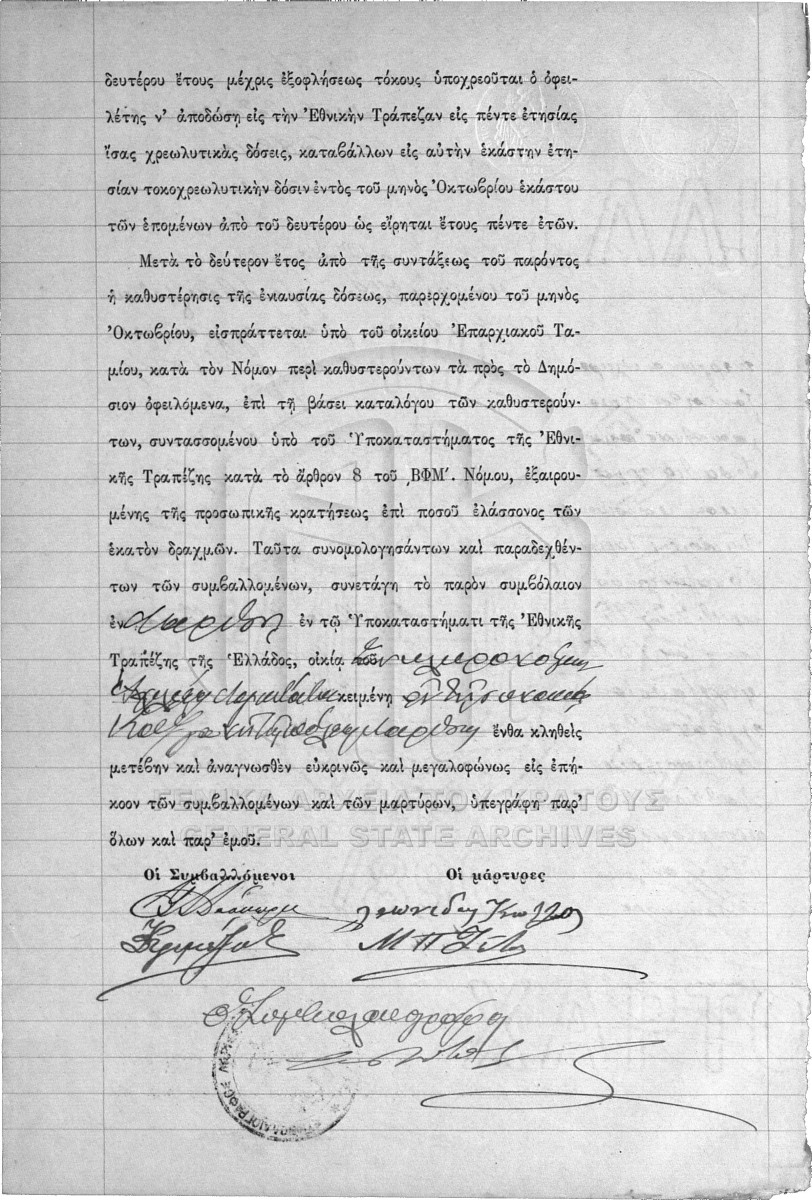 δευτέρου ἔτους μέχρις ἐξοφλήσεως τόκους ὑποχρεοῦται ὁ ὀφει-
λέτης ν' ἀποδώσῃ εἰς τὴν Ἐθνικὴν Τράπεζαν εἰς πέντε ἐτησίας
ἴσας χρεωλυτικὰς δόσεις, καταβάλλων εἰς αὐτὴν ἑκάστην ἐτη-
σίαν τοκοχρεωλυτικὴν δόσιν ἐντὸς τοῦ μηνὸς Ὀκτωβρίου ἑκάστου
τῶν ἑπομένων ἀπὸ τοῦ δευτέρου ὡς εἴρηται ἔτους πέντε ἐτῶν.
Μετὰ τὸ δεύτερον ἔτος ἀπὸ τῆς συντάξεως τοῦ παρόντος
ἡ καθυστέρησις τῆς ἐνιαυσίας δόσεως, παρερχομένου τοῦ μηνὸς
Ὀκτωβρίου, εἰσπράττεται ὑπὸ τοῦ οἰκείου Ἐπαρχιακοῦ Τα-
μίου, κατὰ τὸν Νόμον περὶ καθυστερούντων τὰ πρὸς τὸ Δημό-
σιον ὀφειλόμενα, ἐπὶ τῇ βάσει καταλόγου τῶν καθυστερούν-
των, συντασσομένου ὑπὸ τοῦ Ὑποκαταστήματος τῆς Ἐθνι-
κῆς Τραπέζης κατὰ τὸ ἄρθρον 8 τοῦ ͵ΒΦΜʹ. Νόμου, ἐξαιρου-
μένης τῆς προσωπικῆς κρατήσεως ἐπὶ ποσοῦ ἐλάσσονος τῶν
ἑκατὸν δραχμῶν. Ταῦτα συνομολογησάντων καὶ παραδεχθέν-
των τῶν συμβαλλομένων, συνετάγη τὸ παρὸν συμβόλαιον
ἐν ἐν τῷ Ὑποκαταστήματι τῆς Ἐθνικῆς
Τραπέζης τῆς Ἑλλάδος, οἰκίᾳ τοῦ
κειμένῃ
ἔνθα κληθεὶς
μετέβην καὶ ἀναγνωσθὲν εὐκρινῶς καὶ μεγαλοφώνως εἰς ἐπή-
κοον τῶν συμβαλλομένων καὶ τῶν μαρτύρων, ὑπεγράφη παρ'
ὅλων καὶ παρ' ἐμοῦ.
ΓΕΝΙΚΑ ΑΡΧΕΙΑ ΤΟΥ ΚΡΑΤΟΥΣ
GENERAL STATE ARCHIVES
Οἱ Συμβαλλόμενοι Οἱ μάρτυρες